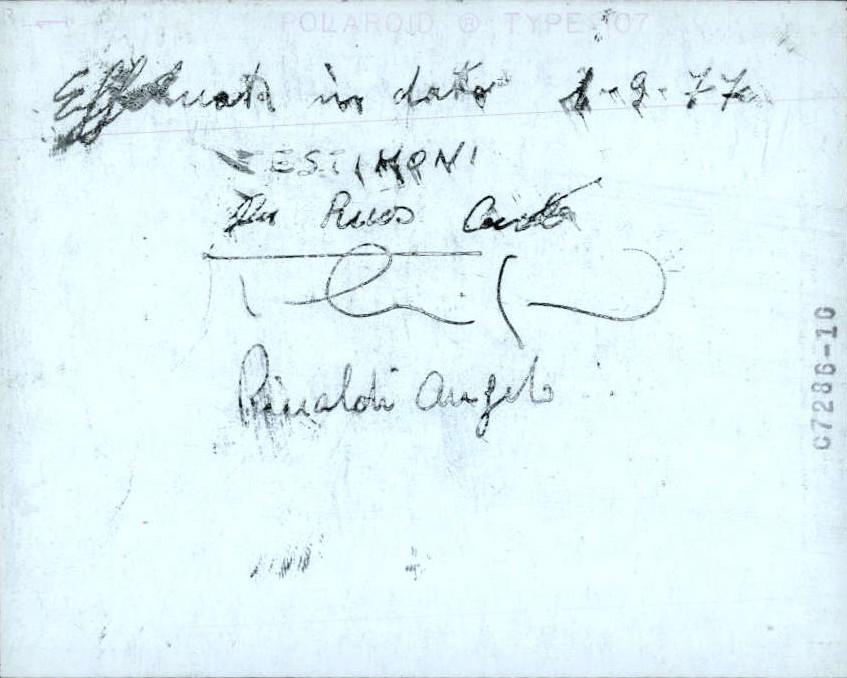 POLAROID ® TYPE 107
Effettuata in data 1-9-77
TESTIMONI
Rinaldi Angelo
C7286-10